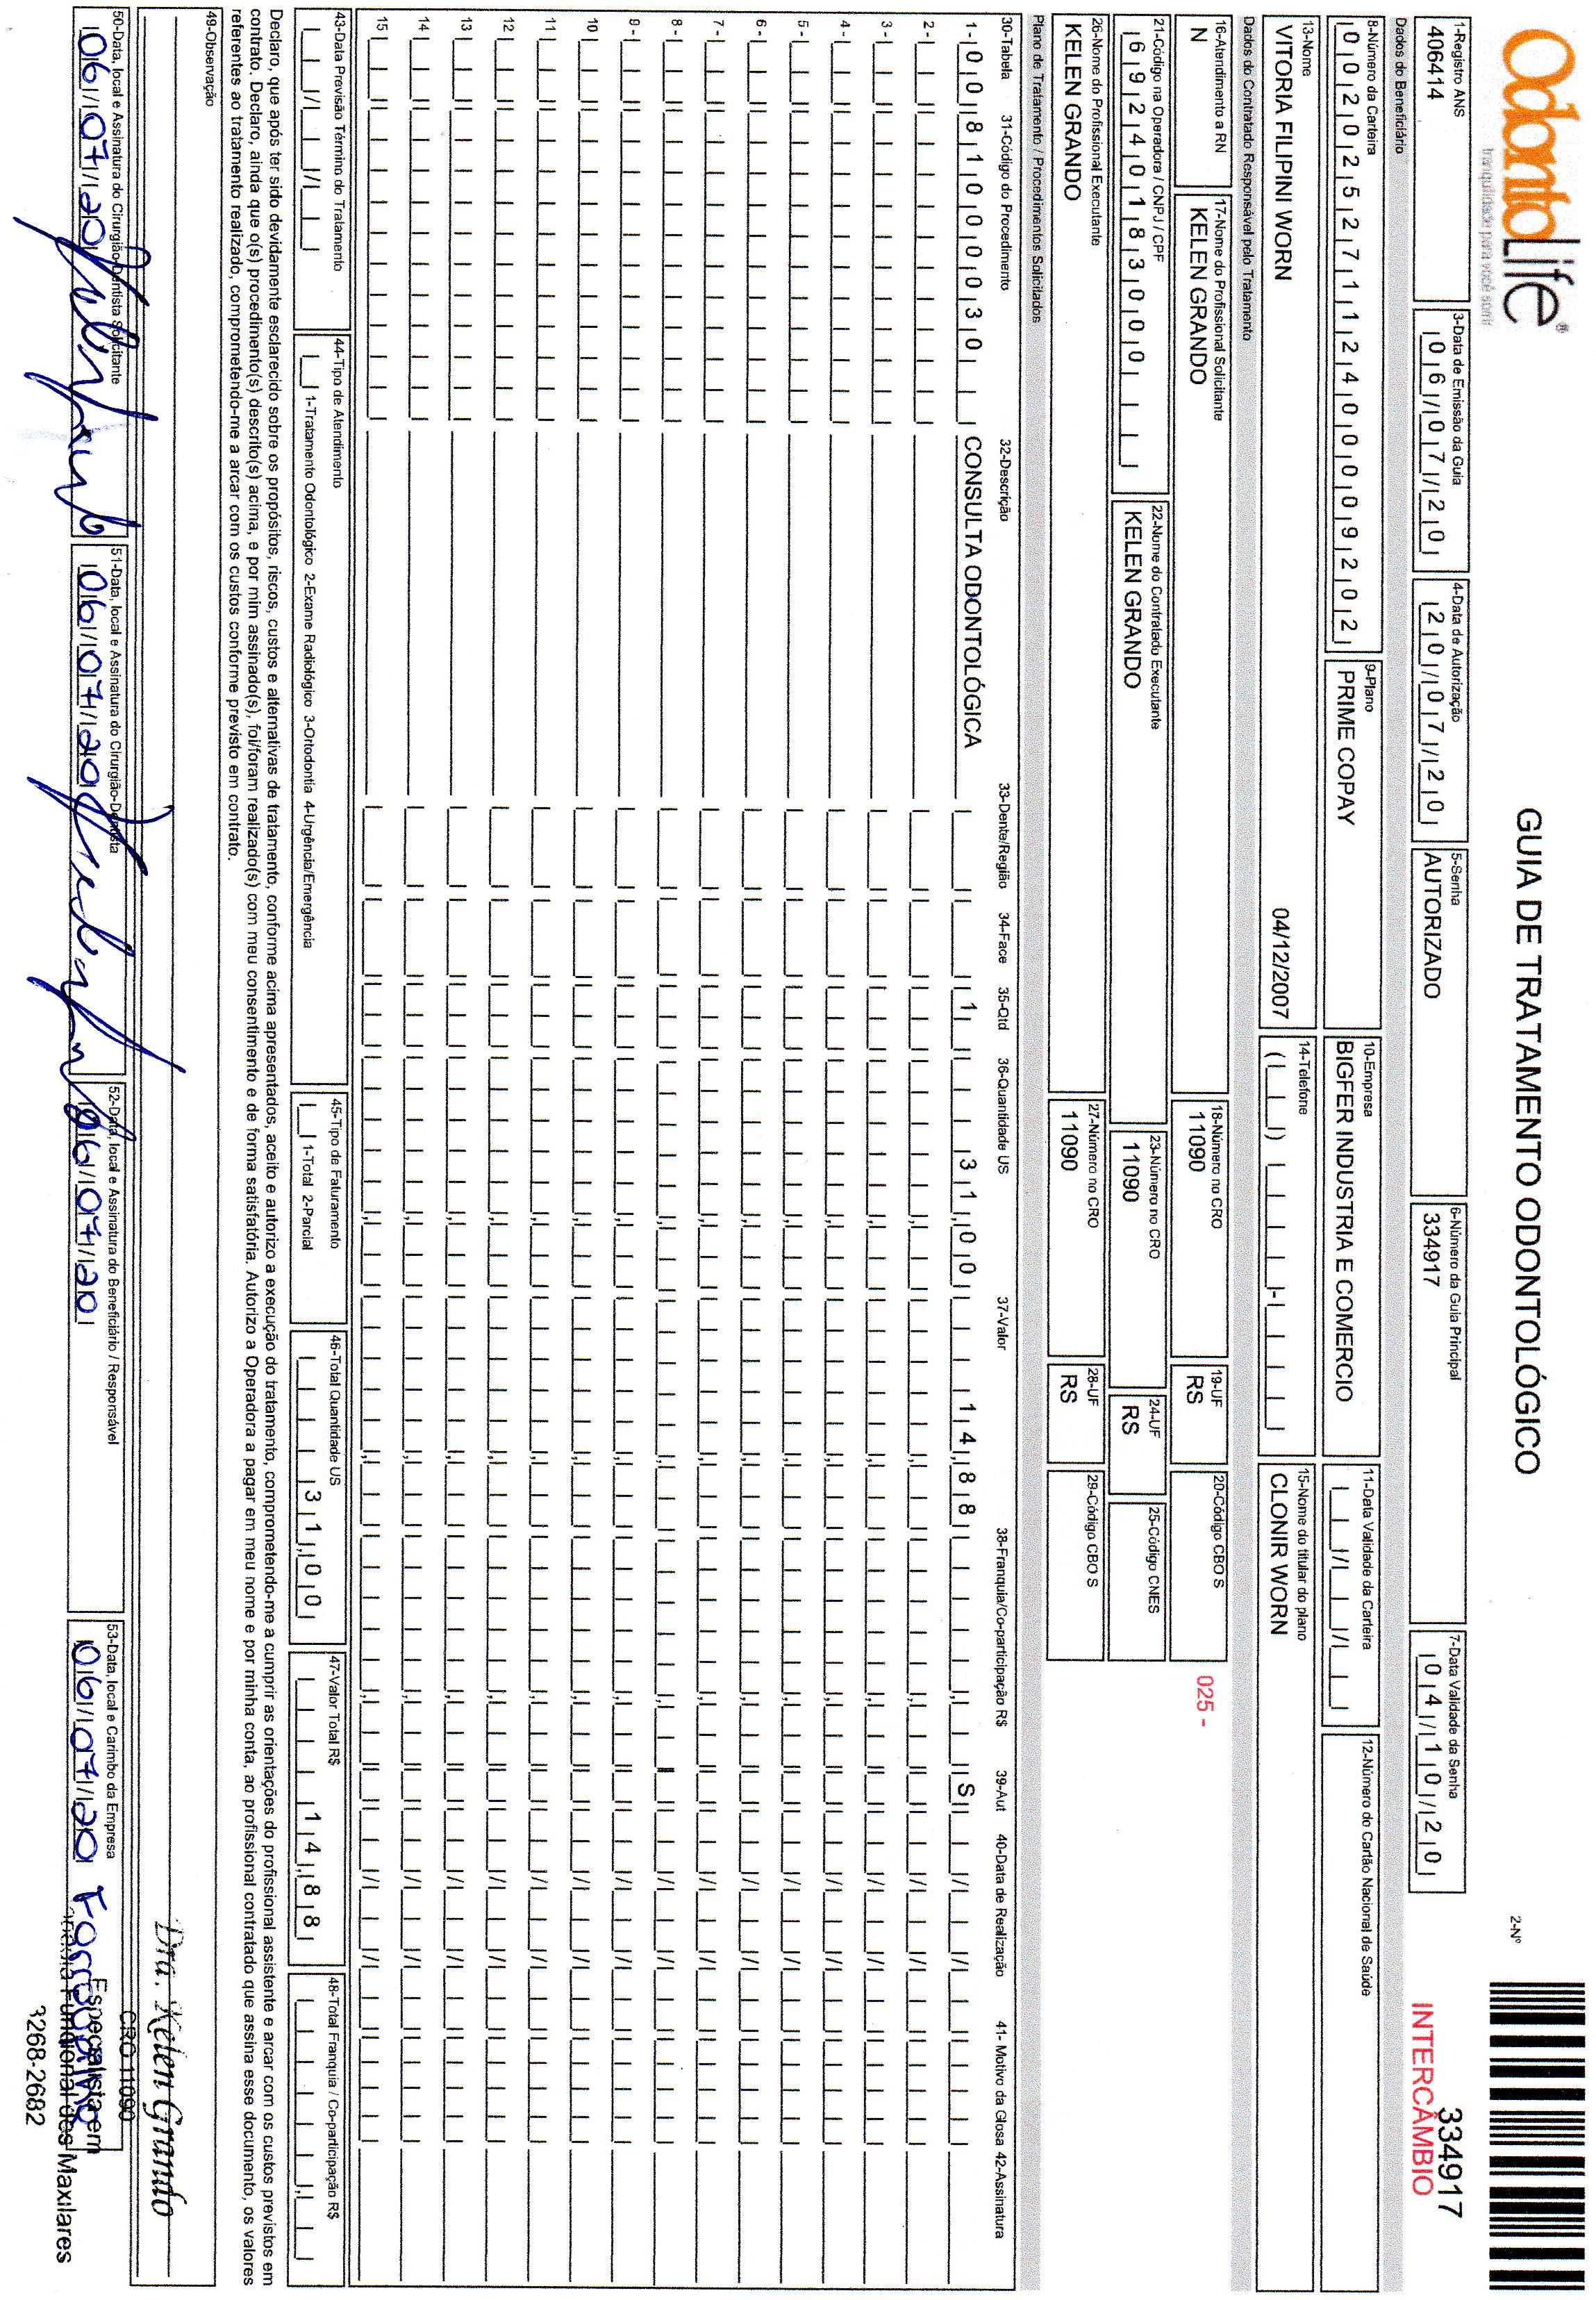 OdontoLife®
tranquilidade para você sorrir
GUIA DE TRATAMENTO ODONTOLÓGICO
2-Nº
334917
INTERCÂMBIO
1-Registro ANS
406414
3-Data de Emissão da Guia
06/07/20
4-Data de Autorização
20/07/20
5-Senha
AUTORIZADO
6-Número da Guia Principal
334917
7-Data Validade da Senha
04/10/20
Dados do Beneficiário
8-Número da Carteira
00202527112400009202
9-Plano
PRIME COPAY
10-Empresa
BIGFER INDUSTRIA E COMERCIO
11-Data Validade da Carteira
12-Número do Cartão Nacional de Saúde
13-Nome
VITORIA FILIPINI WORN
04/12/2007
14-Telefone
15-Nome do titular do plano
CLONIR WORN
Dados do Contratado Responsável pelo Tratamento
16-Atendimento a RN
N
17-Nome do Profissional Solicitante
KELEN GRANDO
18-Número no CRO
11090
19-UF
RS
20-Código CBO S
025 -
21-Código na Operadora / CNPJ / CPF
69240183000
22-Nome do Contratado Executante
KELEN GRANDO
23-Número no CRO
11090
24-UF
RS
25-Código CNES
26-Nome do Profissional Executante
KELEN GRANDO
27-Número no CRO
11090
28-UF
RS
29-Código CBO S
Plano de Tratamento / Procedimentos Solicitados
30-Tabela 31-Código do Procedimento 32-Descrição 33-Dente/Região 34-Face 35-Qtd 36-Quantidade US 37-Valor 38-Franquia/Co-participação R$ 39-Aut 40-Data de Realização 41- Motivo da Glosa 42-Assinatura
1- 00 81000030 CONSULTA ODONTOLÓGICA 1 31,00 14,88 S
2-
3-
4-
5-
6-
7-
8-
9-
10
11
12
13
14
15
43-Data Previsão Término do Tratamento
44-Tipo de Atendimento
1-Tratamento Odontológico 2-Exame Radiológico 3-Ortodontia 4-Urgência/Emergência
45-Tipo de Faturamento
1-Total 2-Parcial
46-Total Quantidade US
31,00
47-Valor Total R$
14,88
48-Total Franquia / Co-participação R$
Declaro, que após ter sido devidamente esclarecido sobre os propósitos, riscos, custos e alternativas de tratamento, conforme acima apresentados, aceito e autorizo a execução do tratamento, comprometendo-me a cumprir as orientações do profissional assistente e arcar com os custos previstos em
contrato. Declaro, ainda que o(s) procedimento(s) descrito(s) acima, e por mim assinado(s), foi/foram realizado(s) com meu consentimento e de forma satisfatória. Autorizo a Operadora a pagar em meu nome e por minha conta, ao profissional contratado que assina esse documento, os valores
referentes ao tratamento realizado, comprometendo-me a arcar com os custos conforme previsto em contrato.
49-Observação
50-Data, local e Assinatura do Cirurgião-Dentista Solicitante
06/07/20
51-Data, local e Assinatura do Cirurgião-Dentista
06/07/20
52-Data, local e Assinatura do Beneficiário / Responsável
06/07/20
53-Data, local e Carimbo da Empresa
06/07/20
Dra. Kelen Grando
CRO 11090
Especialista em
Funcional dos Maxilares
3268-2682